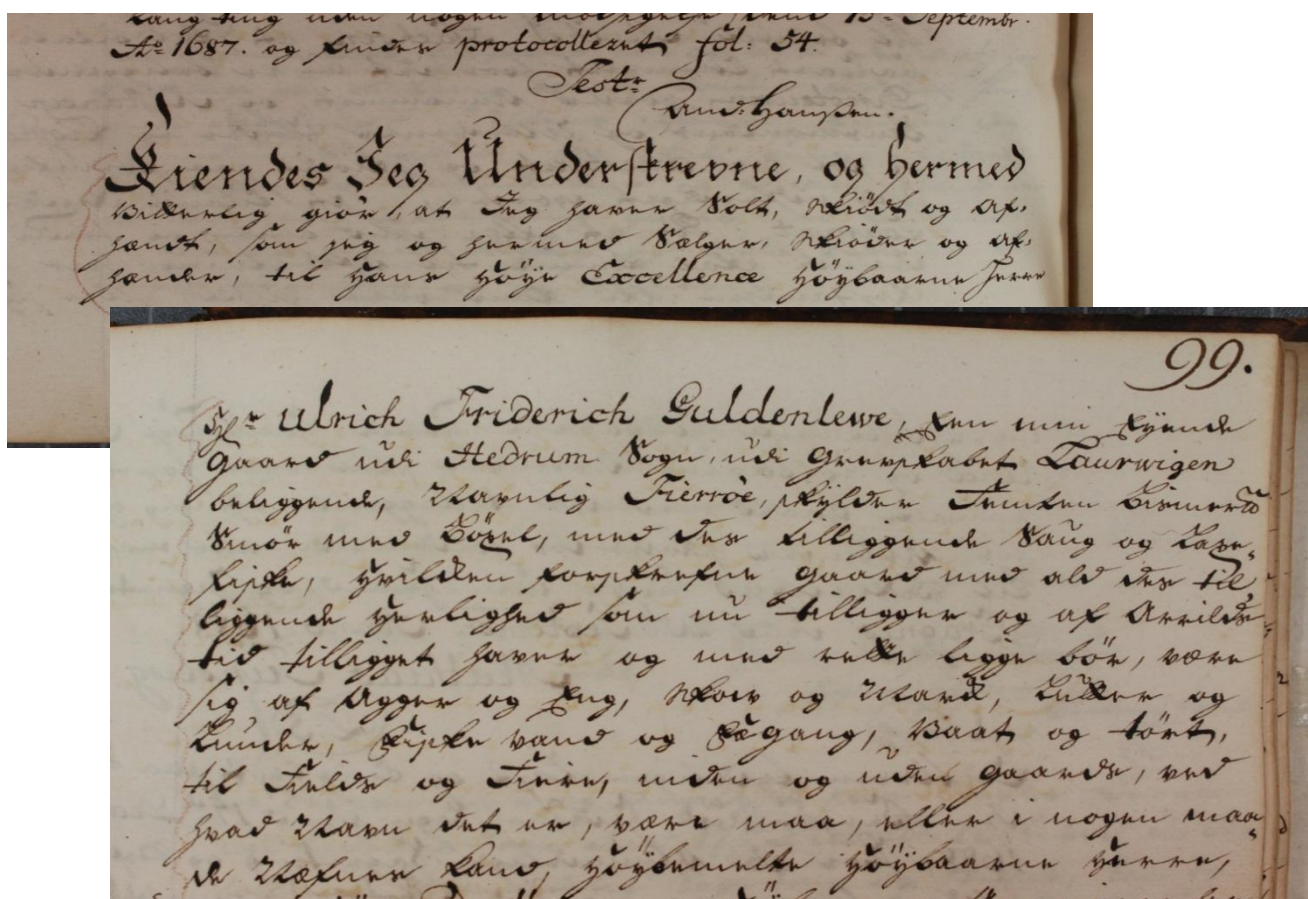 Laug-ting uden nogen modsigelse, dend 15de Septembr.
Ao 1687. og findes protocolleret fol: 54.
Testr
And: Hanßen.
Kiendes Jeg Underskrevne, og hermed
Vitterlig giör, at Jeg haver Solt, Skiödt og af-
hændt, som jeg og hermed Sælger, Skiöder og af-
hænder, til Hans Höye Excellence Höybaarne Herre
99.
Hr Ulrich Friderich Guldenlewe, Een min Eyende
Gaard udi Hedrum Sogn, udi Grevskabet Laurwigen
beliggende, Navnlig Fierröe, skylder Femten Bismer℔
Smör med Böxel, med des tilliggende Saug og Laxe-
fiske, Hvilken forskrefne Gaard med ald des til-
liggende Herlighed som nu tilligger og af Arrilds-
tid tilligget haver og med rette ligge bör, være
sig af Agger og Eng, Skow og Marck, Lutter og
Lunder, Fiske vand og Fægang, Vaat og tört,
til Fields og Fiere, inden og uden Gaards, ved
hvad Navn det er, være maa, eller i nogen maa-
de Næfnes kand, Höybemelte Höybaarne Herre,